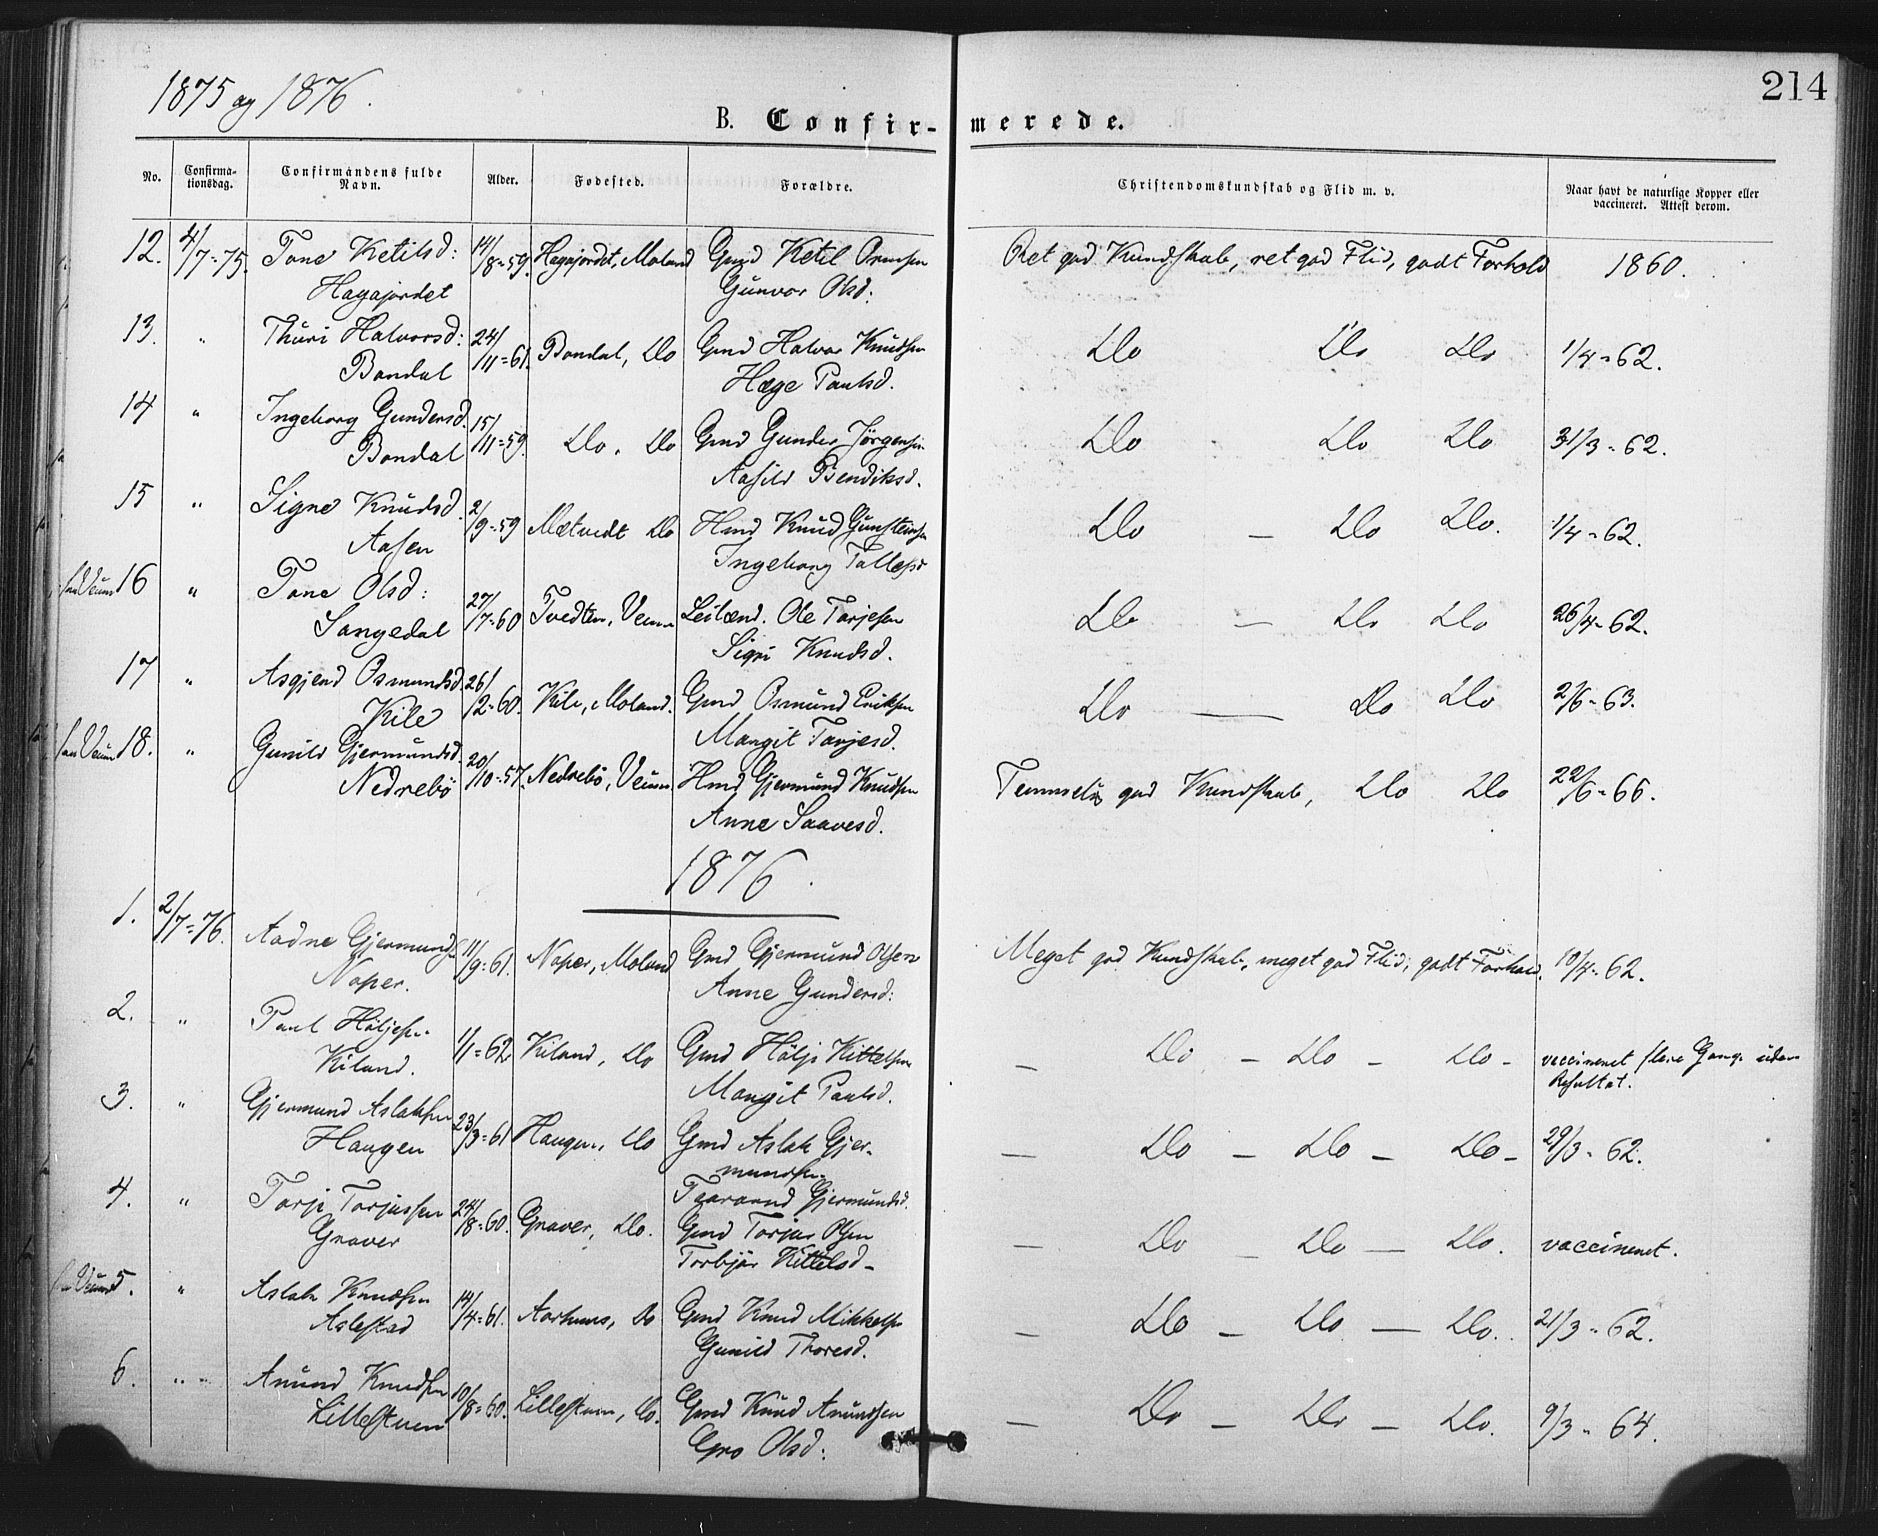 1875 og 1876.
214
B. Confir- merede.
No. Confirma-tionsdag. Confirmandens fulde Navn. Alder. Fødested. Forældre. Christendomskundskab og Flid m. v. Naar havt de naturlige Kopper eller vaccineret. Attest derom.
12. 4/7=75. Tone Ketilsd: 14/8=59. Hagajordet, Moland Gmd Ketil Ormsen Ret god Kundskab, ret god Flid, godt Forhold 1860.
Hagajordet Gunvor Olsd:
13. " Thuri Halvorsd: 24/11=61. Bondal, Do Gmd Halvor Knudsen Do Do Do 1/4=62.
Bondal Hæge Paulsd.
14 " Ingeborg Gundersd. 15/11=59. Do. Do Gmd Gunder Jørgensen Do — Do Do 31/3=62.
Bondal Aasild Bendiksd.
15 " Signe Knudsd. 2/9=59 Mætvedt Do Hmd Knud Gunsteinsen Do — Do Do. 1/4=62.
Aasen Ingeborg Tallefsd
16 " Tone Olsd: 27/7=60 Tvedten, Veum Leilænd. Ole Tarjesen Do — Do Do 26/4=62.
Sangedal Sigri Knudsd.
17 " Asgjerd Osmundsd. 26/12=60. Kile, Moland. Gmd Osmund Eriksen Do — Do Do 2/6=63.
Kile Margit Tarjesd.
18. " Gunild Gjermundsd. 20/10=57. Nedrebö, Veum Hmd Gjermund Knudsen Temmelig god Kundskab, Do Do 22/6=66.
Nedrebö Anne Saavesd.
1876.
1. 2/7=76. Aadne Gjermunds. 11/9=61. Naper, Moland Gmd Gjermund Olsen Meget god Kundskab, meget god Flid, godt Forhold. 10/4=62.
Naper. Anne Gundersd:
2. " Paul Høljesen 1/1=62 Kiland, Do Gmd Hølje Kittelsen — Do — Do — Do — vaccineret flere Gange uden
Kiland. Margit Paulsd. Resultat.
3. " Gjermund Aslaksen 23/3=61 Haugen, Do Gmd Aslak Gjer- — Do — Do — Do — 29/3=62.
Haugen mundsen
Taraand Gjermundsd.
4. " Tarje Tarjussen 24/8=60. Graver, Do. Gmd Tarjus Olsen — Do — Do — Do. vaccineret.
Graver Torbjør Kittelsd —
5. " Aslak Knudsen 14/4=61. Aarhuus, Do Gmd Knud Mikkelsen — Do — Do — Do. 21/3=62.
Aslestad Gunild Thoresd.
6. " Anund Knudsen 10/8=60. Lillestuen, Do. Gmd Knud Anundsen — Do — Do — Do. 9/3=64.
Lillestuen Gro Olsd: